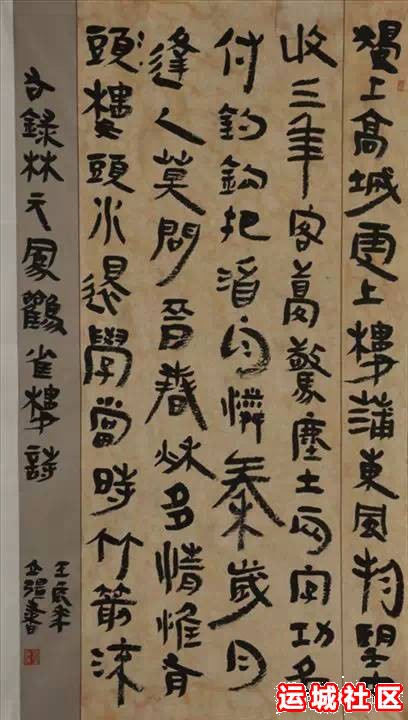 獨上高城更上樓蒲東風物望中
收三年客夢驚塵土兩字功名
付釣鉤把酒自憐秦歲月
逢人莫問晉春秋多情惟有
頭樓頭水還學當時竹箭流
右錄林元鳳鸛雀樓詩
壬辰年
書
运城社区